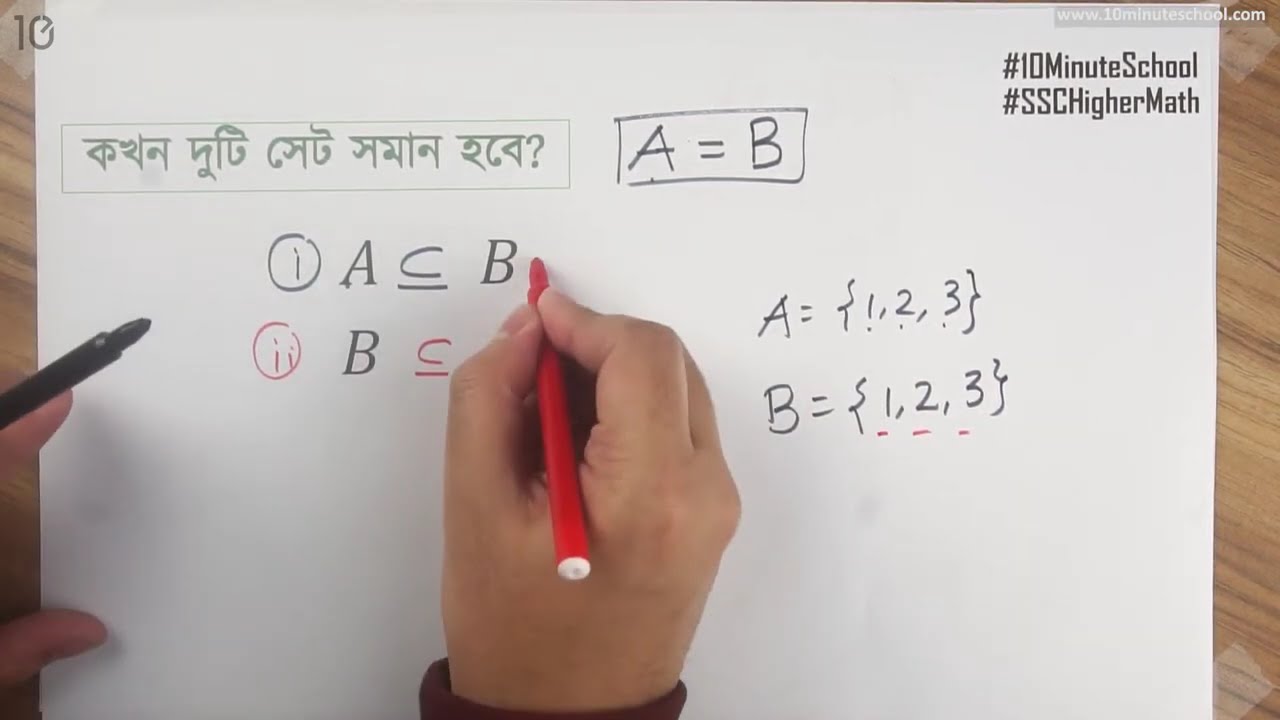 10
www.10minuteschool.com
#10MinuteSchool
#SSCHigherMath
কখন দুটি সেট সমান হবে?
A = B
i A ⊆ B
ii B ⊆
A = {1, 2, 3}
B = {1, 2, 3}